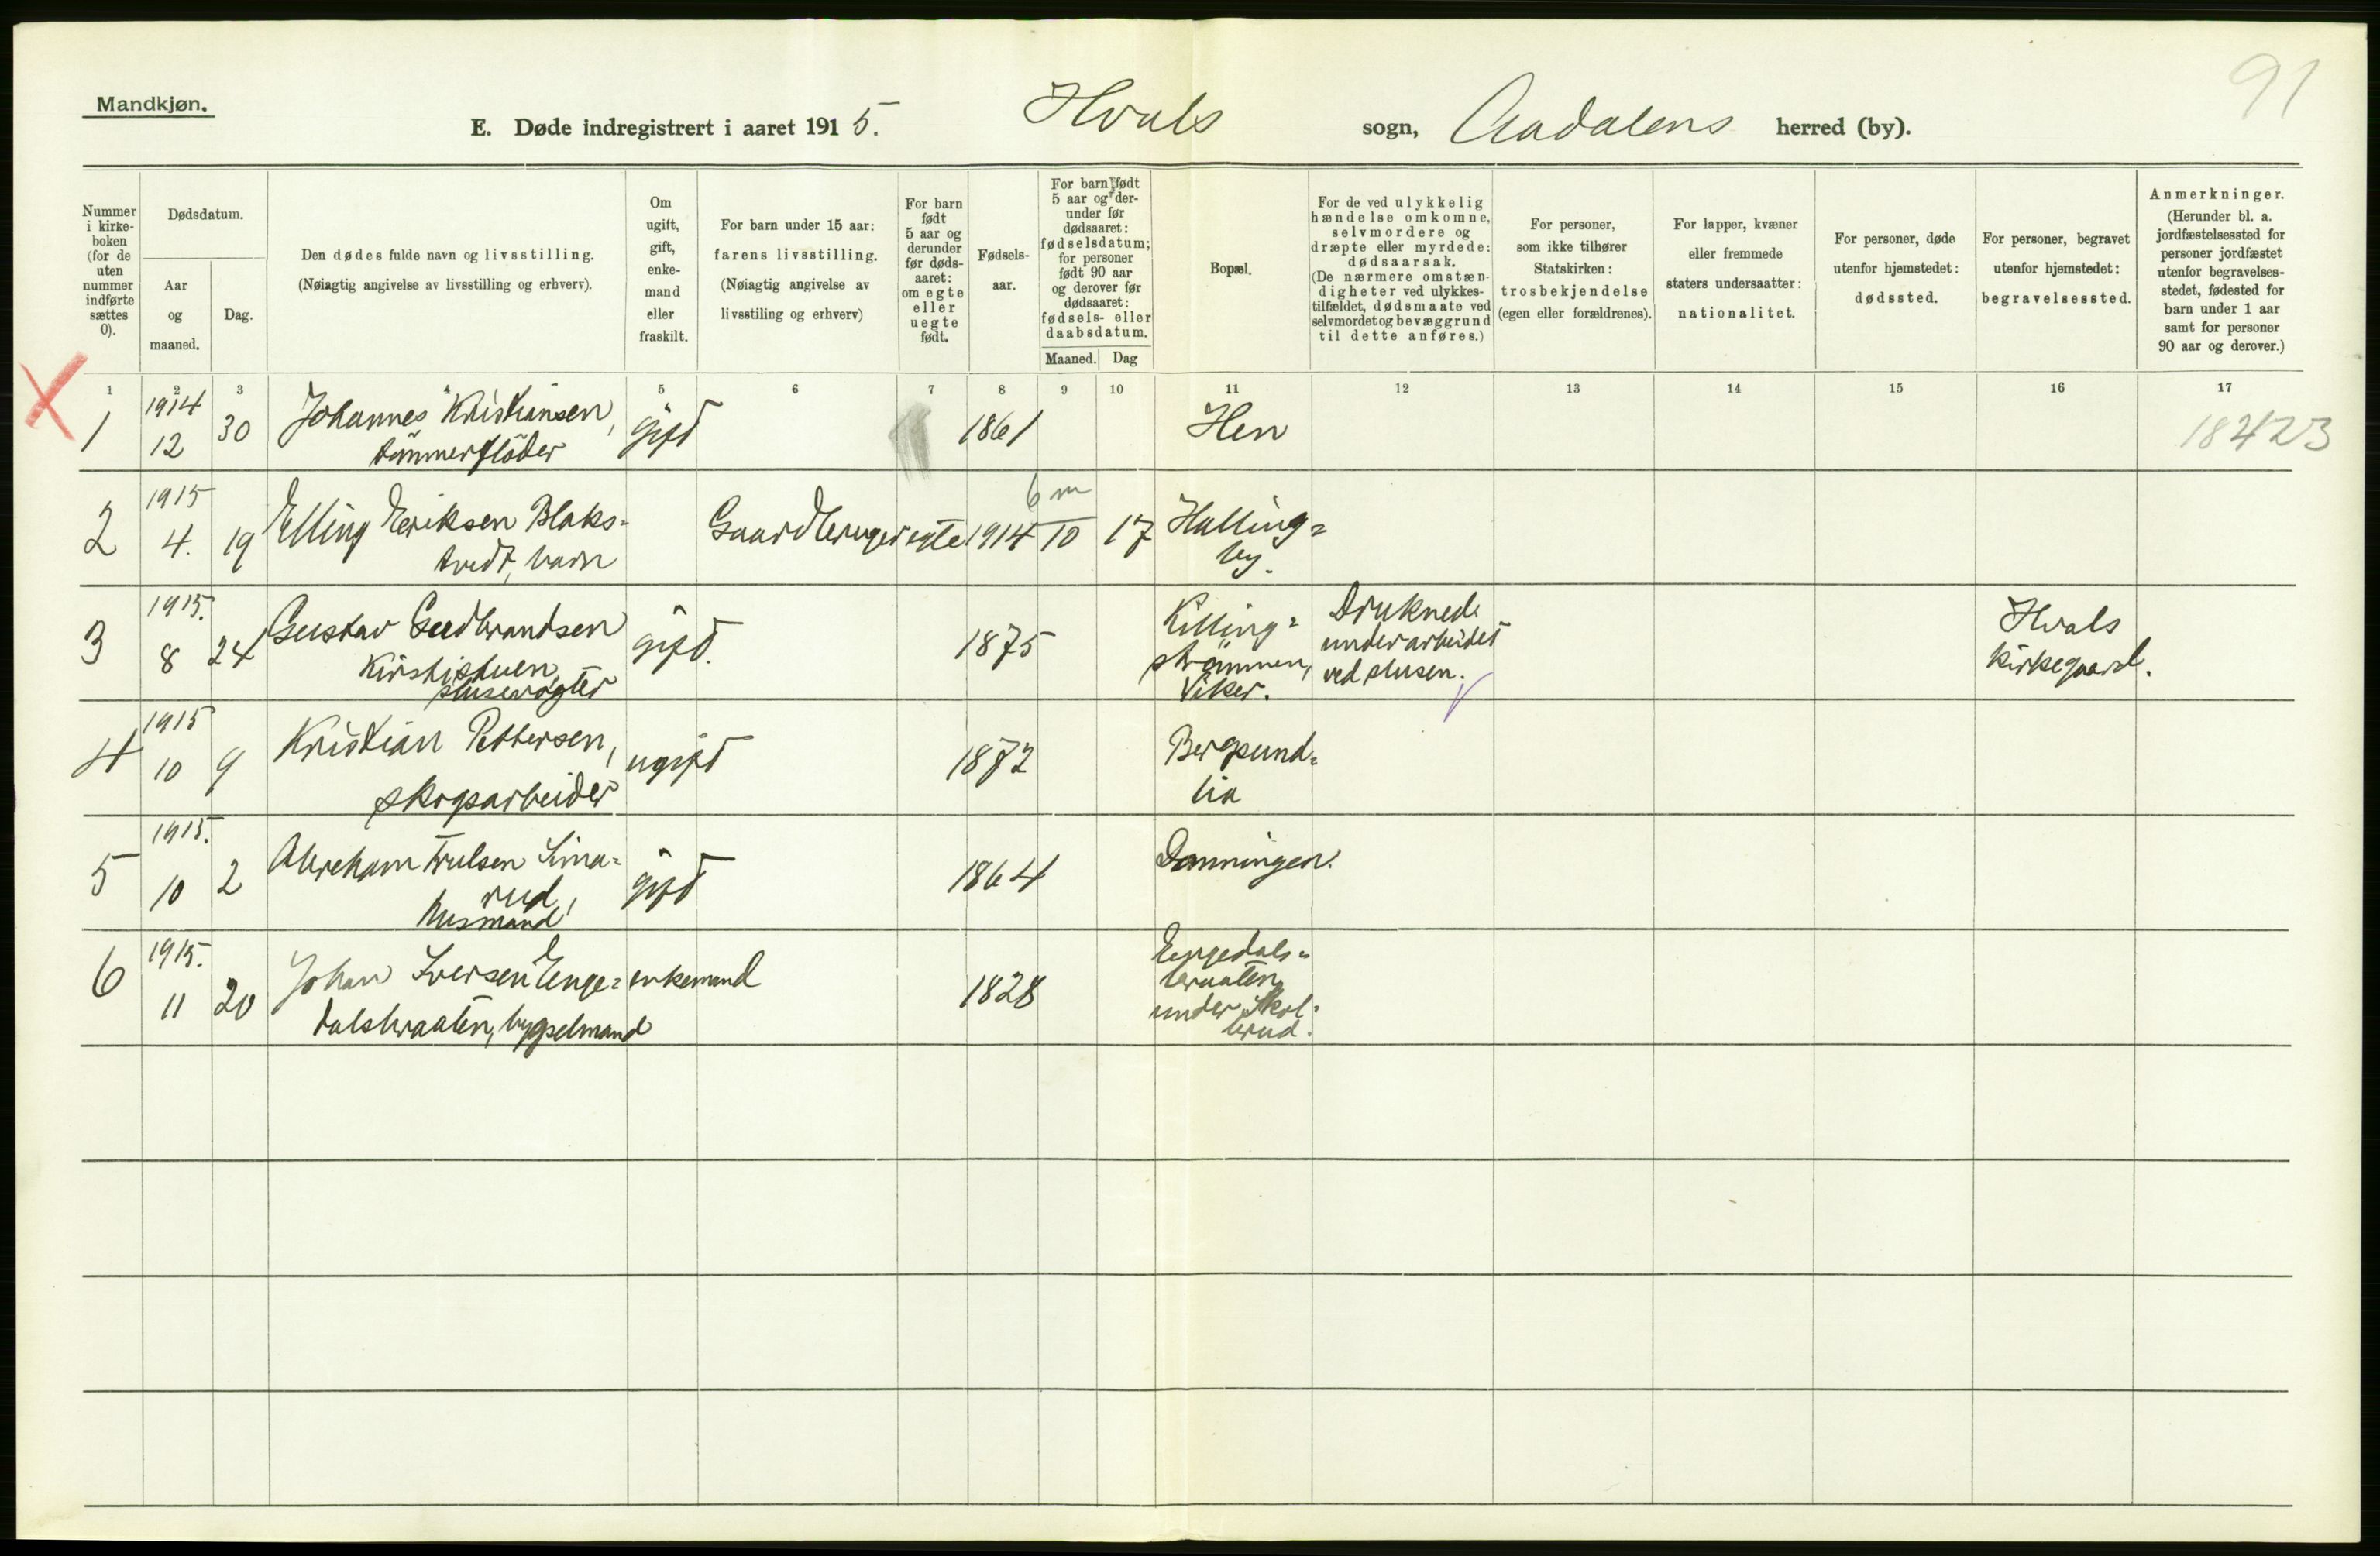 91
Mandkjøn.
E. Døde indregistrert i aaret 1915. Hvals sogn, Aadalens herred (by).
Nummer i kirkeboken (for de uten nummer indførte sættes 0).
Dødsdatum.
Aar og maaned.
Dag.
Den dødes fulde navn og livsstilling.
(Nøiagtig angivelse av livsstilling og erhverv).
Om ugift, gift, enkemand eller fraskilt.
For barn under 15 aar:
farens livsstilling.
(Nøiagtig angivelse av livsstiling og erhverv)
For barn født 5 aar og derunder før dødsaaret: om egte eller uegte født.
Fødselsaar.
For barn født 5 aar og derunder før dødsaaret: fødselsdatum; for personer født 90 aar og derover før dødsaaret: fødsels- eller daabsdatum.
Maaned. Dag
Bopæl.
For de ved ulykkelig hændelse omkomne, selvmordere og dræpte eller myrdede: dødsaarsak.
(De nærmere omstændigheter ved ulykkestilfældet, dødsmaate ved selvmordet og bevæggrund til dette anføres.)
For personer, som ikke tilhører Statskirken: trosbekjendelse (egen eller forældrenes).
For lapper, kvæner eller fremmede staters undersaatter: nationalitet.
For personer, døde utenfor hjemstedet: dødssted.
For personer, begravet utenfor hjemstedet: begravelsessted.
Anmerkninger.
(Herunder bl. a. jordfæstelsessted for personer jordfæstet utenfor begravelsesstedet, fødested for barn under 1 aar samt for personer 90 aar og derover.)
1 2 3 4 5 6 7 8 9 10 11 12 13 14 15 16 17
1 1914 12 30 Johannes Kristiansen, tømmerfløder gift 1861 Hen 18423
2 1915 4. 19 Elling Eriksen Blaks=
tvedt, barn Gaardbruger egte 1914 6 m 10 17 Halling=
by.
3 1915. 8 24 Gustav Gudbrandsen
Kirstistuen,
slusevogter gift. 1875 Killing=
strømmen,
Viker. Druknede
under arbeidet
ved slusen. Hvals
kirkegaard.
4 1915 10 9 Kristian Pettersen,
skogsarbeider ugift 1872 Bergsund=
lia
5 1915. 10 2 Abraham Trulsen Lima=
rud,
husmand gift 1864 Somningen.
6 1915. 11 20 Johan Iversen Enge=
dalsbraaten, bygselmand enkemand 1828 Engedals=
braaten
under Skol=
brud.